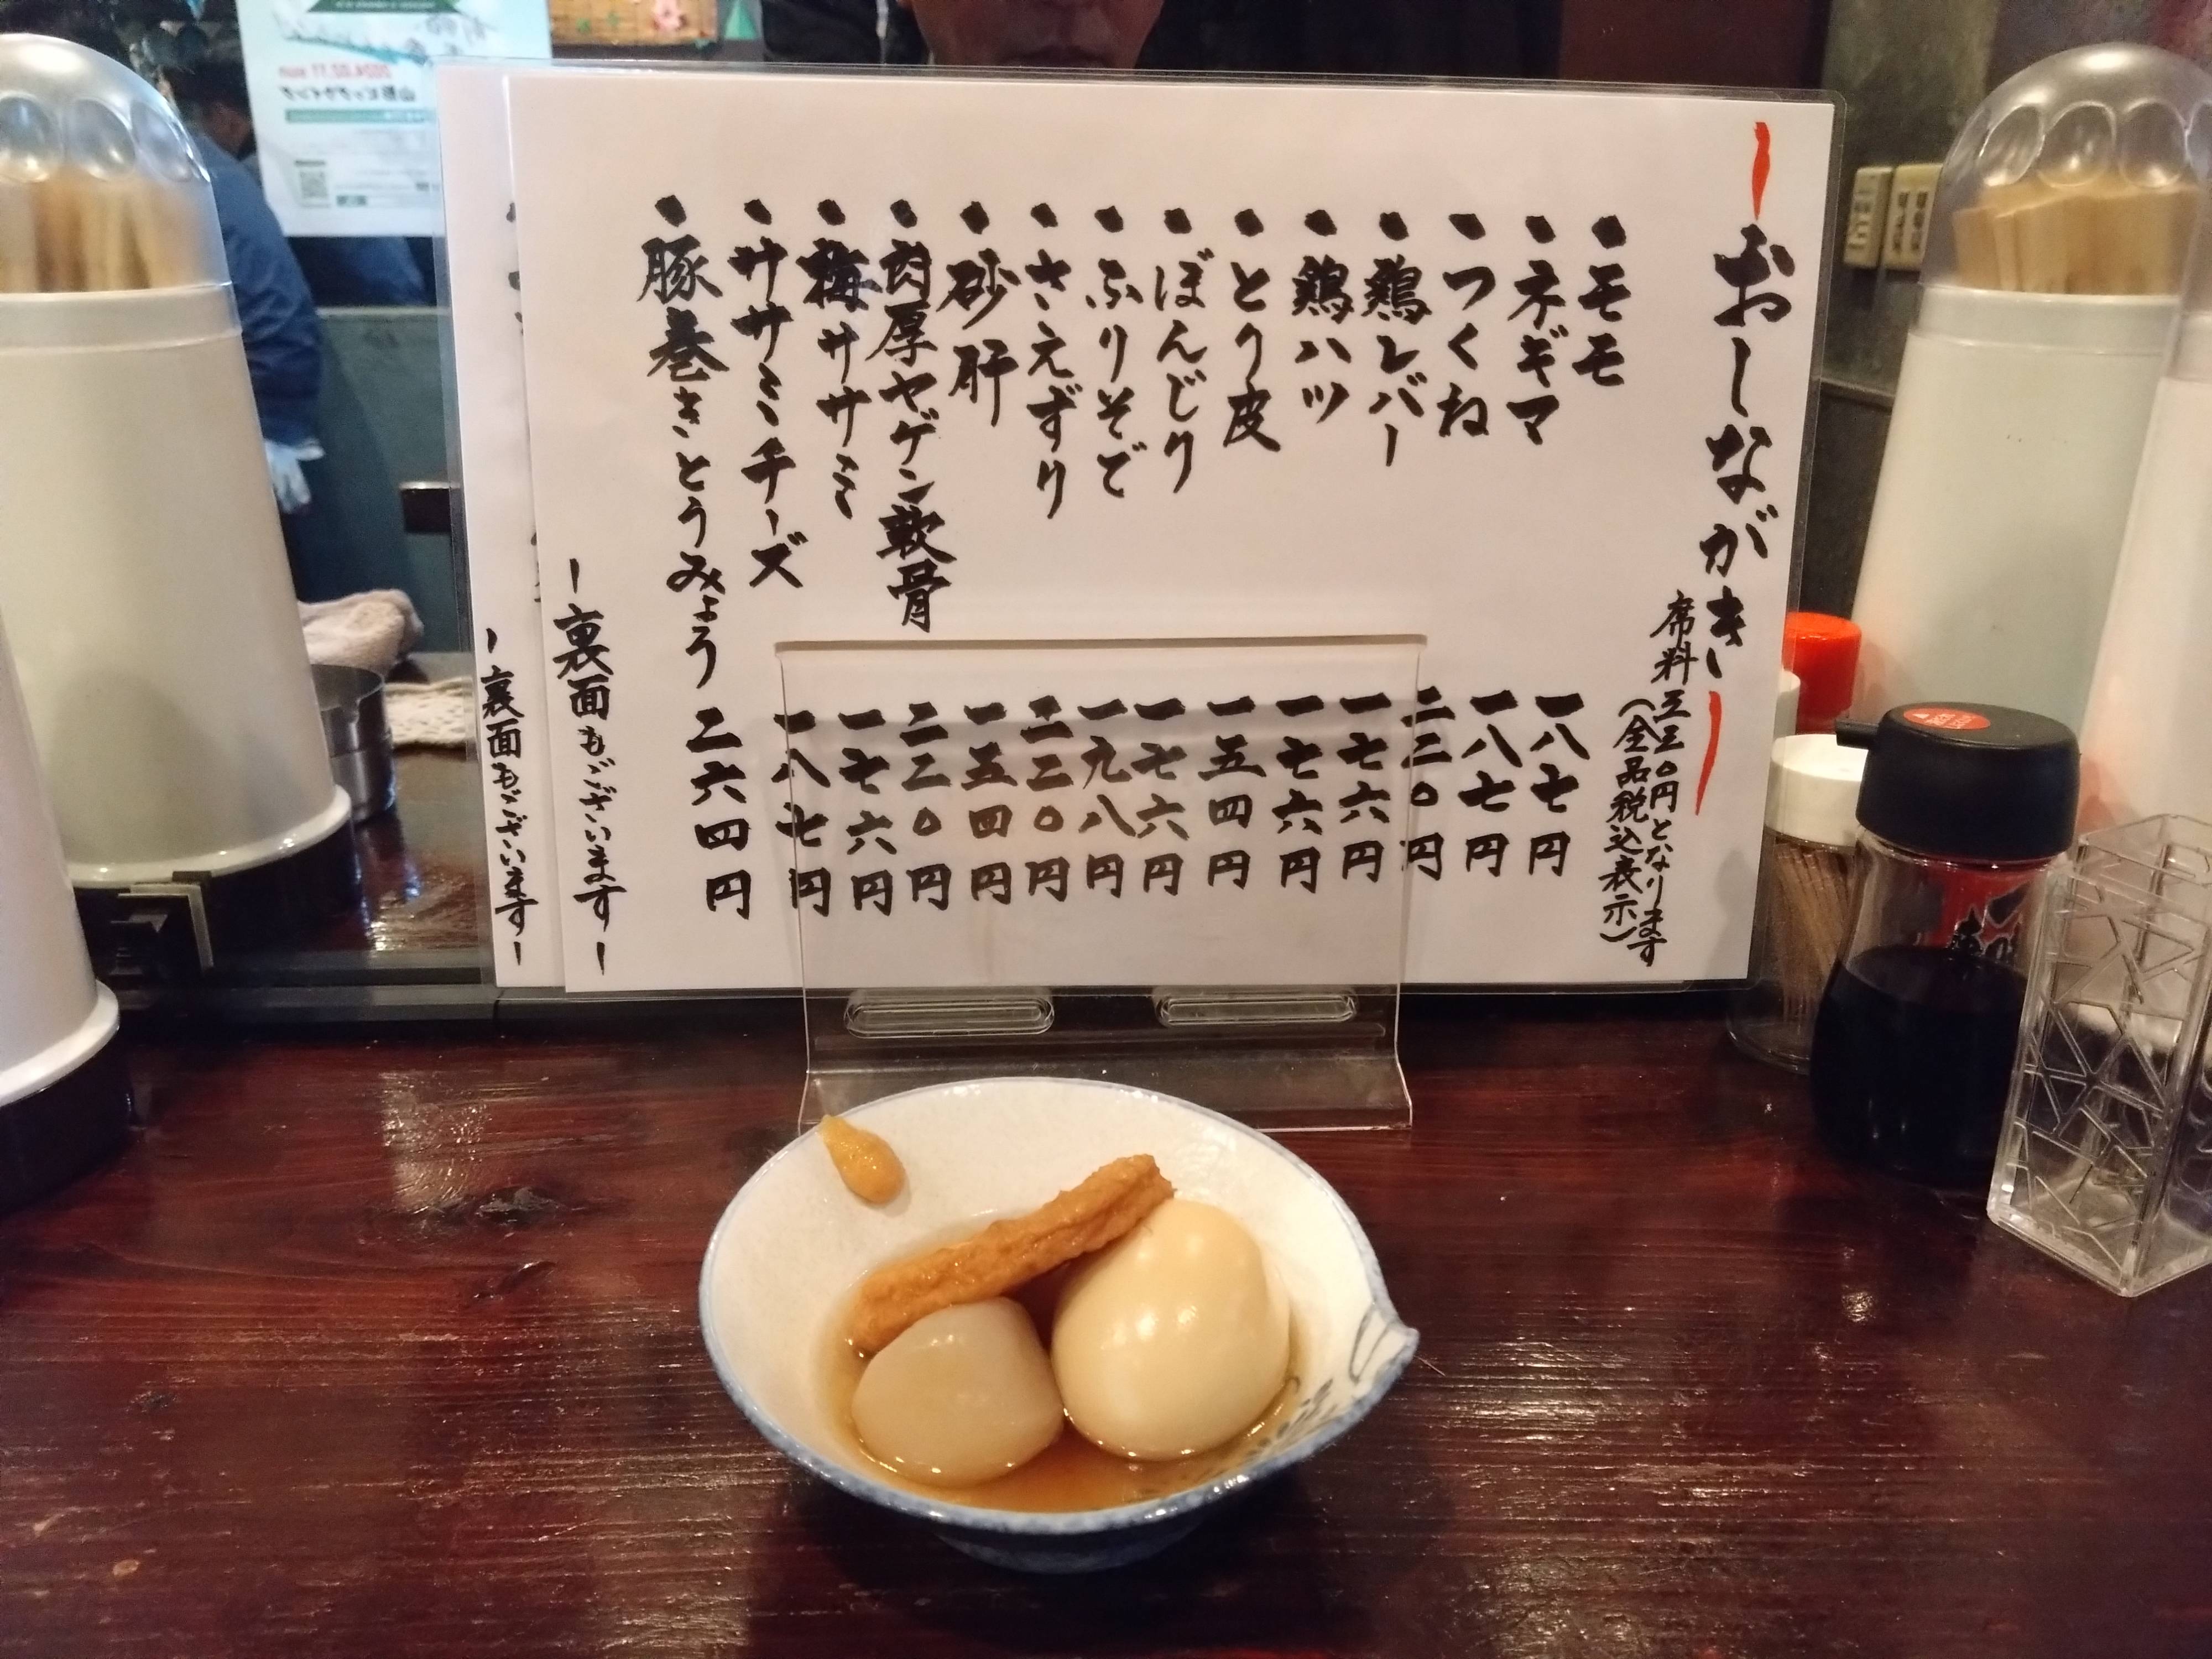 おしながき
席料三三〇円となります
(全品税込表示)
・モモ 一八七円
・ネギマ 一八七円
・つくね 二二〇円
・鶏レバー 一七六円
・鶏ハツ 一七六円
・とり皮 一五四円
・ぼんじり 一七六円
・ふりそで 一九八円
・さえずり 二二〇円
・砂肝 一五四円
・肉厚ヤゲン軟骨 二二〇円
・梅ササミ 一七六円
・ササミチーズ 一八七円
・豚巻きとうみょう 二六四円
ー裏面もございますー
ー裏面もございますー